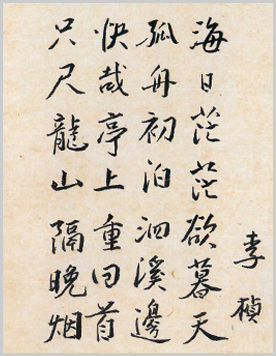 海日茫茫欲暮天
孤舟初泊泗溪邊
快哉亭上重回首
只尺龍山隔晚烟
李楨